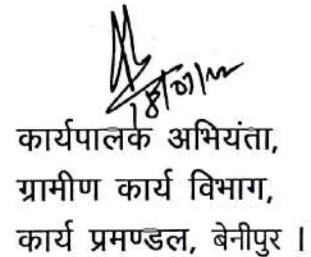 18/07/22
कार्यपालक अभियंता,
ग्रामीण कार्य विभाग,
कार्य प्रमण्डल, बेनीपुर ।